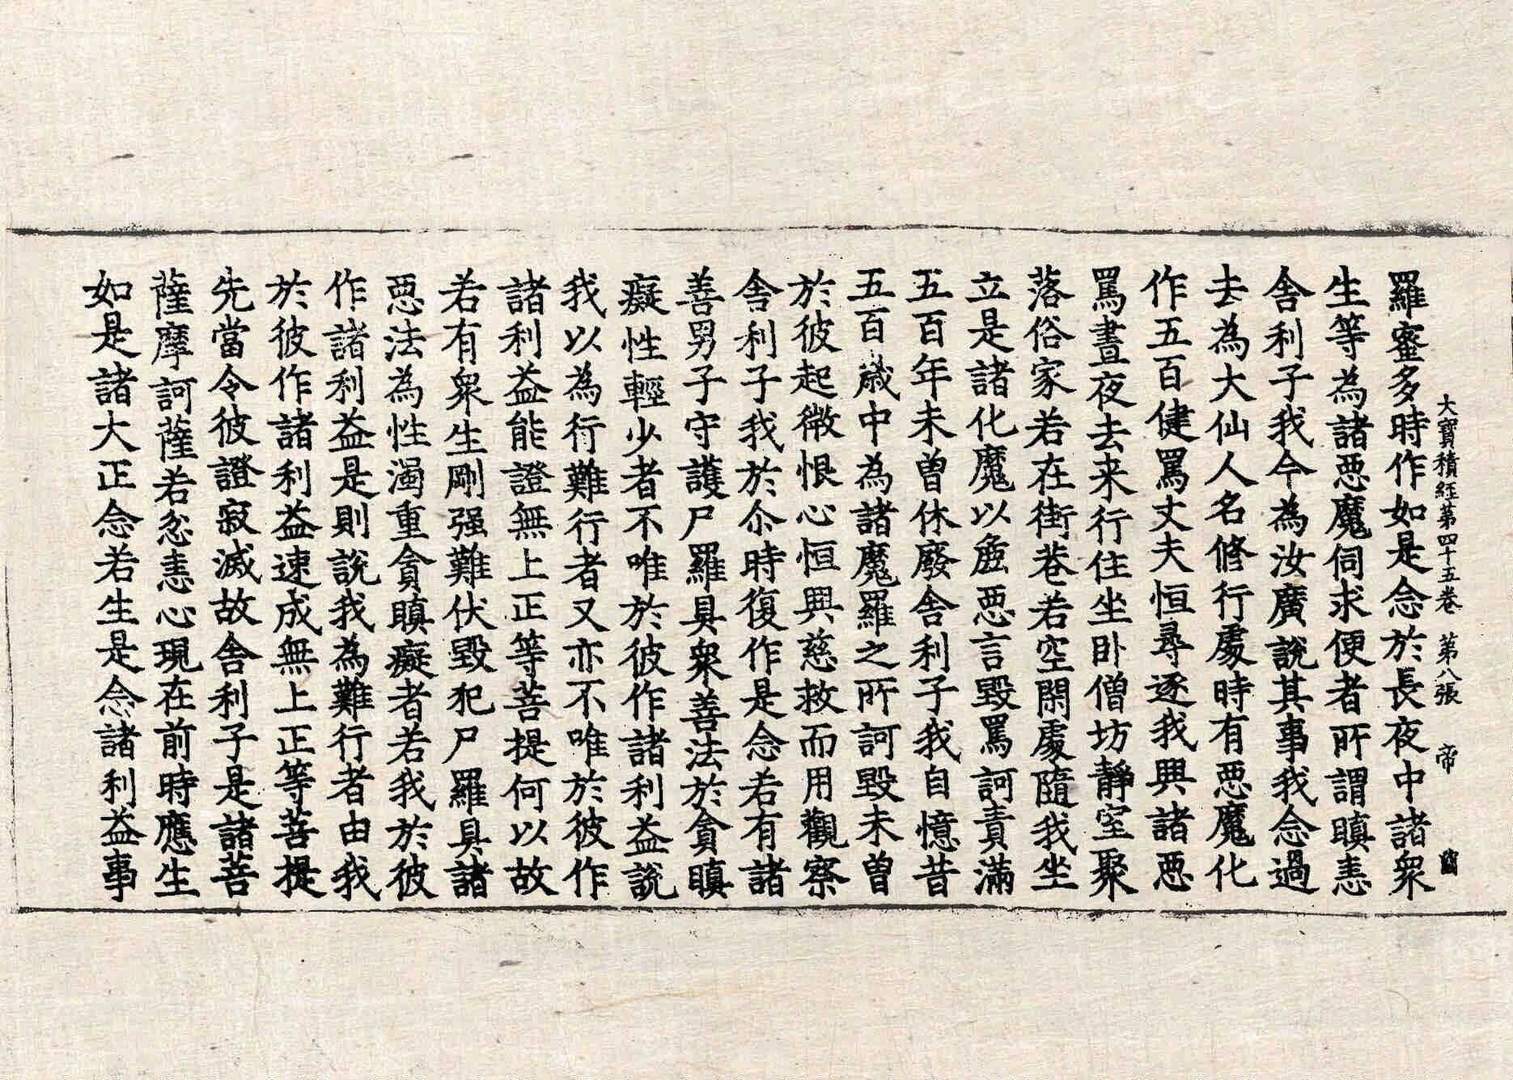 大寶積經第四十五卷 第八張 帝
羅蜜多時作如是念於長夜中諸衆
生等為諸惡魔伺求便者所謂瞋恚
舍利子我今為汝廣說其事我念過
去為大仙人名修行處時有惡魔化
作五百健罵丈夫恒尋逐我興諸惡
罵晝夜去来行住坐卧僧坊靜室聚
落俗家若在街巷若空閑處隨我坐
立是諸化魔以麁惡言毀罵訶責滿
五百年未曾休廢舍利子我自憶昔
五百歲中為諸魔羅之所訶毀未曾
於彼起微恨心恒興慈救而用觀察
舍利子我於尒時復作是念若有諸
善男子守護尸羅具衆善法於貪瞋
癡性輕少者不唯於彼作諸利益說
我以為行難行者又亦不唯於彼作
諸利益能證無上正等菩提何以故
若有衆生剛强難伏毀犯尸羅具諸
惡法為性濁重貪瞋癡者若我於彼
作諸利益是則說我為難行者由我
於彼作諸利益速成無上正等菩提
先當令彼證寂滅故舍利子是諸菩
薩摩訶薩若忿恚心現在前時應生
如是諸大正念若生是念諸利益事